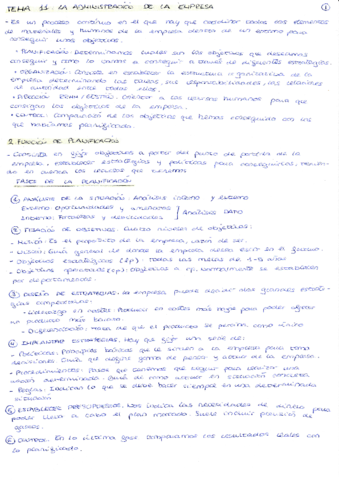 TEMA 11: LA ADMINISTRACIÓN DE LA EMPRESA
①
• Es un proceso continuo en el que hay que coordinar todos los elementos
materiales y humanos de la empresa dentro de un entorno para
conseguir unos objetivos.
• PLANIFICACIÓN: Determinamos cuáles son los objetivos que deseamos
conseguir y cómo lo vamos a conseguir a través de algunas estrategias.
• ORGANIZACIÓN: Consiste en establecer la estructura organizativa de la
empresa determinando las tareas, las responsabilidades, las relaciones
de autoridad entre
• DIRECCIÓN a los recursos humanos para que
consigan los objetivos de la empresa.
• CONTROL: Comparación de los objetivos que hemos conseguido con los que
habíamos planificado.
2. FUNCIÓN DE PLANIFICACIÓN
- Consiste en fijar objetivos a partir del punto de partida de la
empresa, establecer estrategias y políticas para conseguirlos, teniendo
en cuenta los recursos que tenemos
FASES DE LA PLANIFICACIÓN
① ANÁLISIS DE LA SITUACIÓN: Análisis interno y externo
Externo: oportunidades y amenazas
Interno: Fortalezas y debilidades
ANÁLISIS DAFO
② FIJACIÓN DE OBJETIVOS: Cuatro niveles de objetivos:
- Misión: Es el propósito de la empresa, razón de ser.
- Visión: de donde la empresa desea estar en el futuro.
- Objetivos estratégicos (l/p): Todas las metas de
- Objetivos operativos (c/p): Objetivos a c/p, normalmente se establecen
por departamentos.
③ DISEÑO DE ESTRATEGIAS: La empresa puede seguir dos grandes estrategias
competitivas:
• Liderazgo en costes: Producir en costes más bajos para poder ofrecer
un producto más barato.
• Diferenciación: Hacer que el producto se perciba como único
④ IMPLANTAR ESTRATEGIAS: Hay que fijar una serie de:
- Políticas: Principios básicos que se siguen a la empresa para toma
decisiones. forma de pensar y actuar de la empresa.
- Procedimientos: Pasos que tenemos que seguir para realizar una
acción determinada. actuar en situación concreta.
- Reglas: Indican lo que se debe hacer siempre en una determinada
situación
⑤ ESTABLECER PRESUPUESTOS: Nos indica las necesidades de dinero para
poder llevar a cabo el plan marcado. Suele incluir previsión de
gastos.
⑥ CONTROL: En la última fase comparamos los resultados reales con
lo planificado.